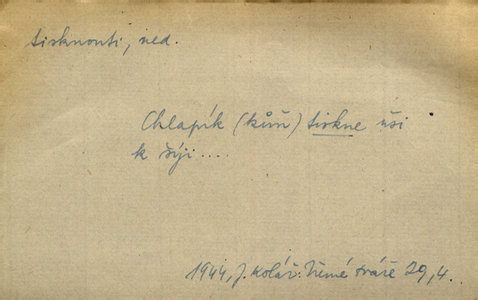 tisknouti, ned.
Chlapík (kůň) tiskne uši
k šíji....
1944, J. Kolář: Němé tváře 29, 4.